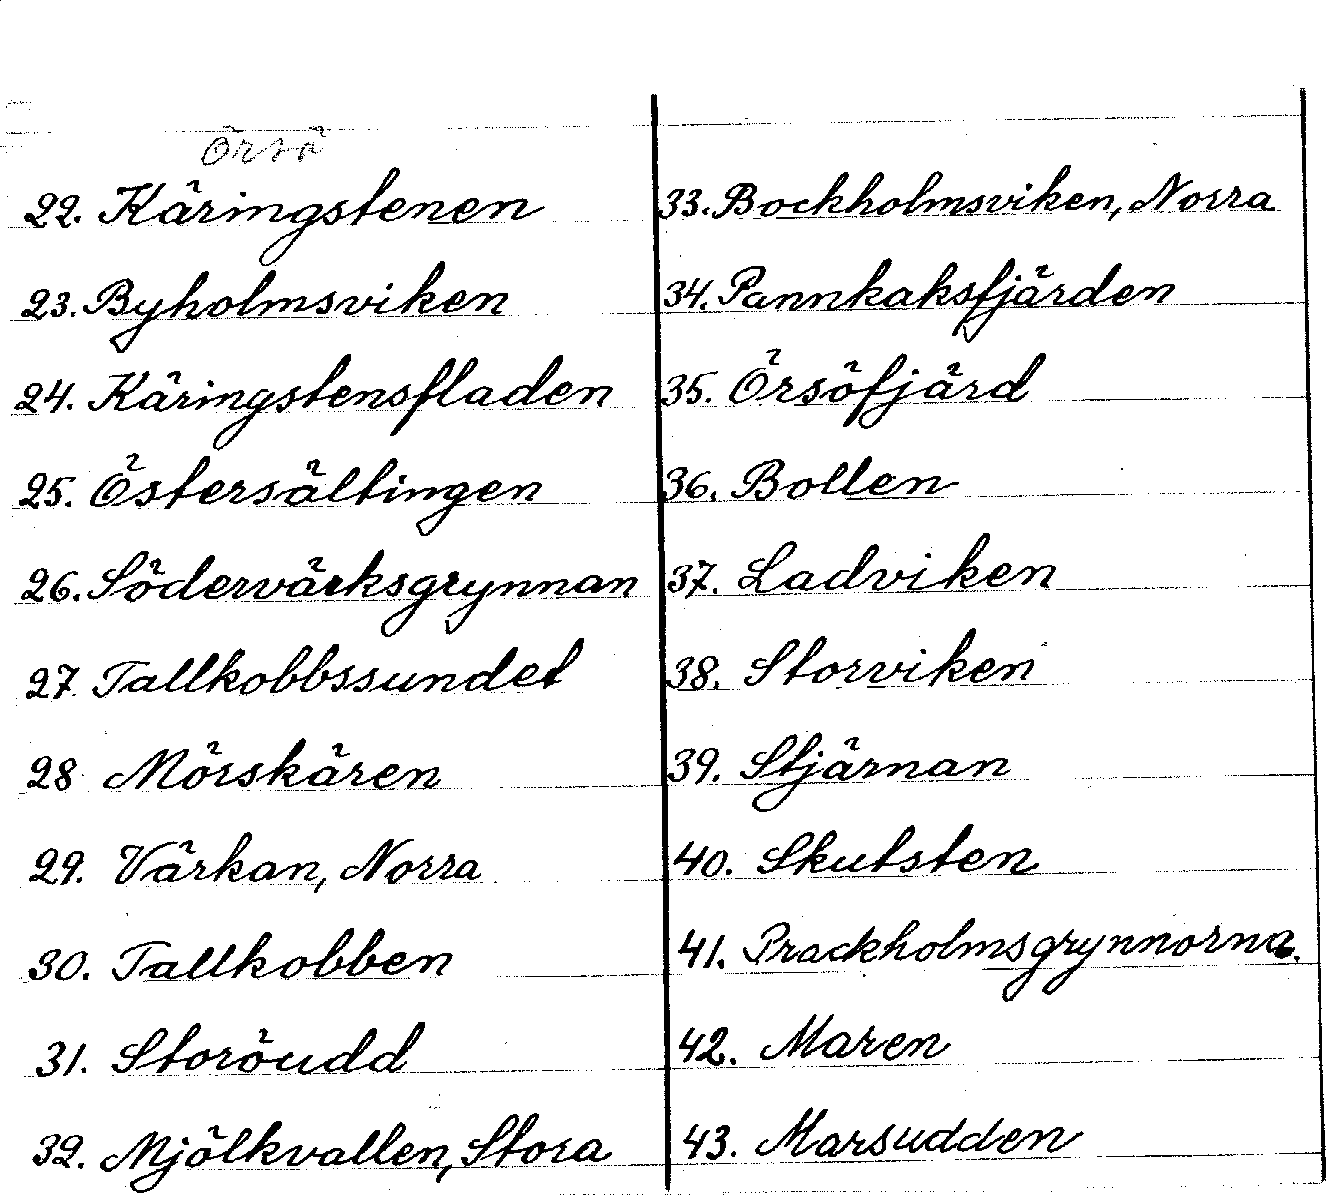 Örsö
22. Käringstenen
23. Byholmsviken
24. Käringstensfladen
25. Östersältingen
26. Södervärksgrynnan
27 Tallkobbssundet
28 Mörskären
29. Värkan, Norra
30. Tallkobben
31. Storöudd
32. Mjölkvallen, Stora
33. Bockholmsviken, Norra
34. Pannkaksfjärden
35. Örsöfjärd
36. Bollen
37. Ladviken
38. Storviken
39. Stjärnan
40. Skutsten
41. Prackholmsgrynnorna.
42. Maren
43. Marsudden